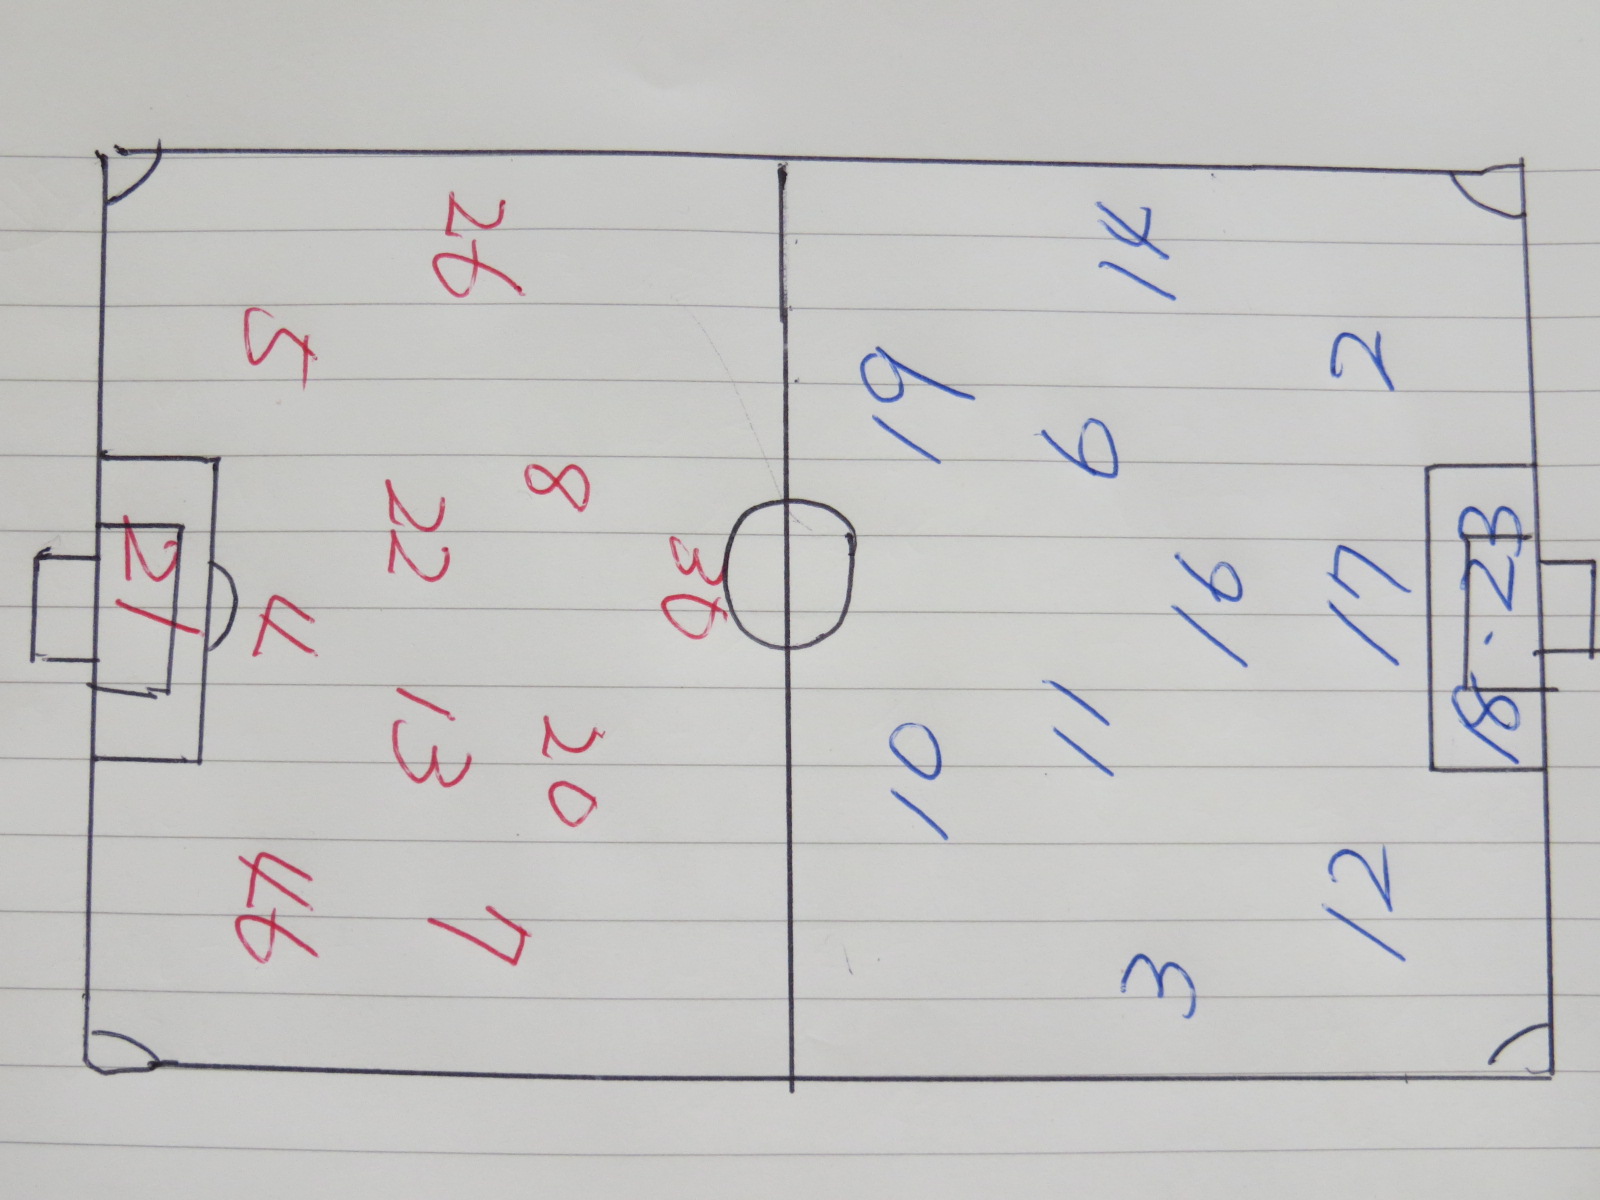 26
5
8
22
36
21
4
13
20
46
7
14
2
19
6
18·23
16
17
11
10
12
3